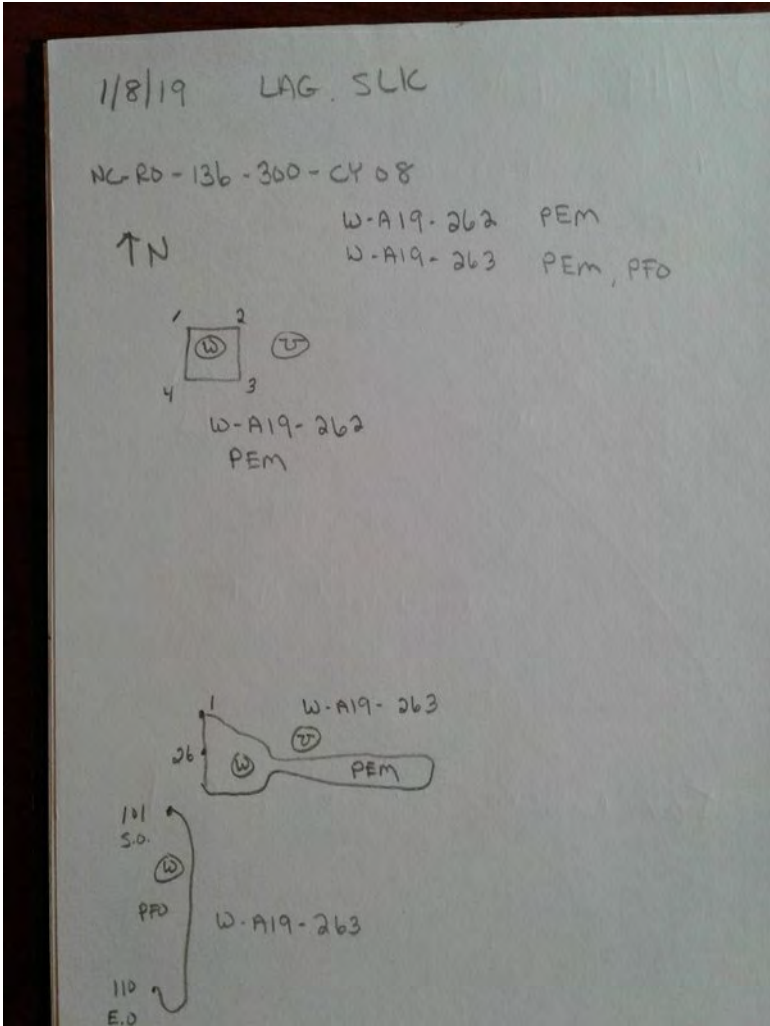 1/8/19 LAG. SLK
NC-RO-136-300-CY08
W-A19-262 PEM
W-A19-263 PEM, PFO
↑N
1 2
W U
4 3
W-A19-262
PEM
1 W-A19-263
U
26 W PEM
101
S.O.
W
PFO W-A19-263
110
E.O